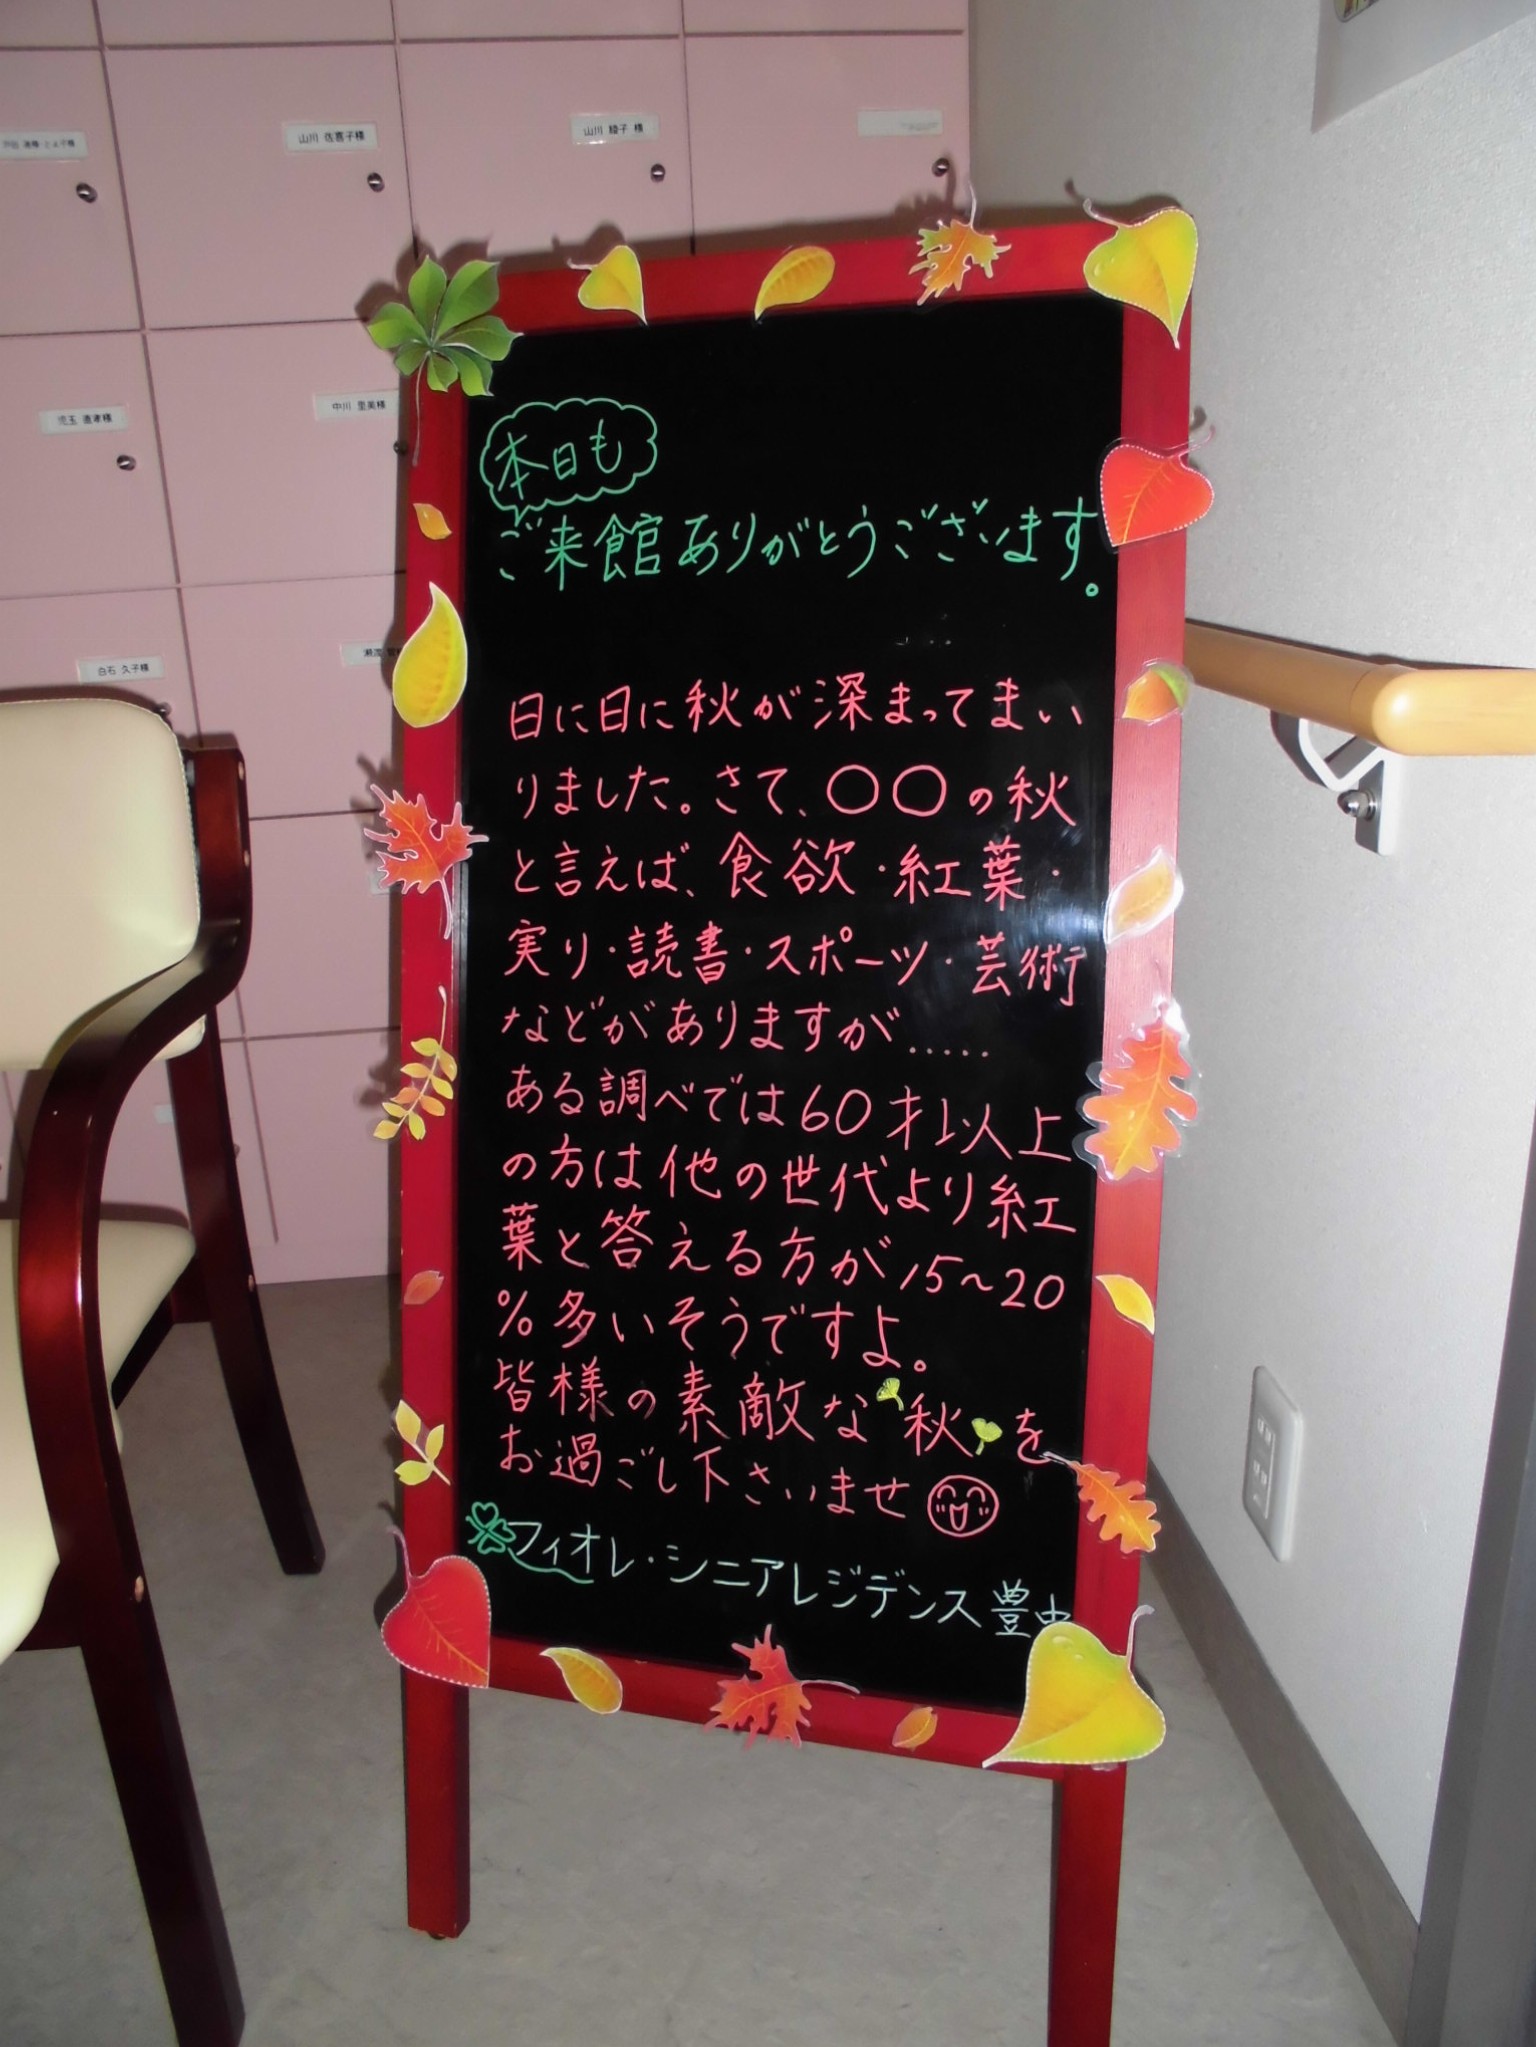 山川 佐喜子様
山川 綾子 様
児玉
中川 里美様
白石 久子様
本日も
ご来館ありがとうございます。
日に日に秋が深まってまい
りました。さて、〇〇の秋
と言えば、食欲・紅葉・
実り・読書・スポーツ・芸術
などがありますが.....
ある調べでは60才以上
の方は他の世代より紅
葉と答える方が15~20
%多いそうですよ。
皆様の素敵な秋を
お過ごし下さいませ
フィオレ・シニアレジデンス豊中